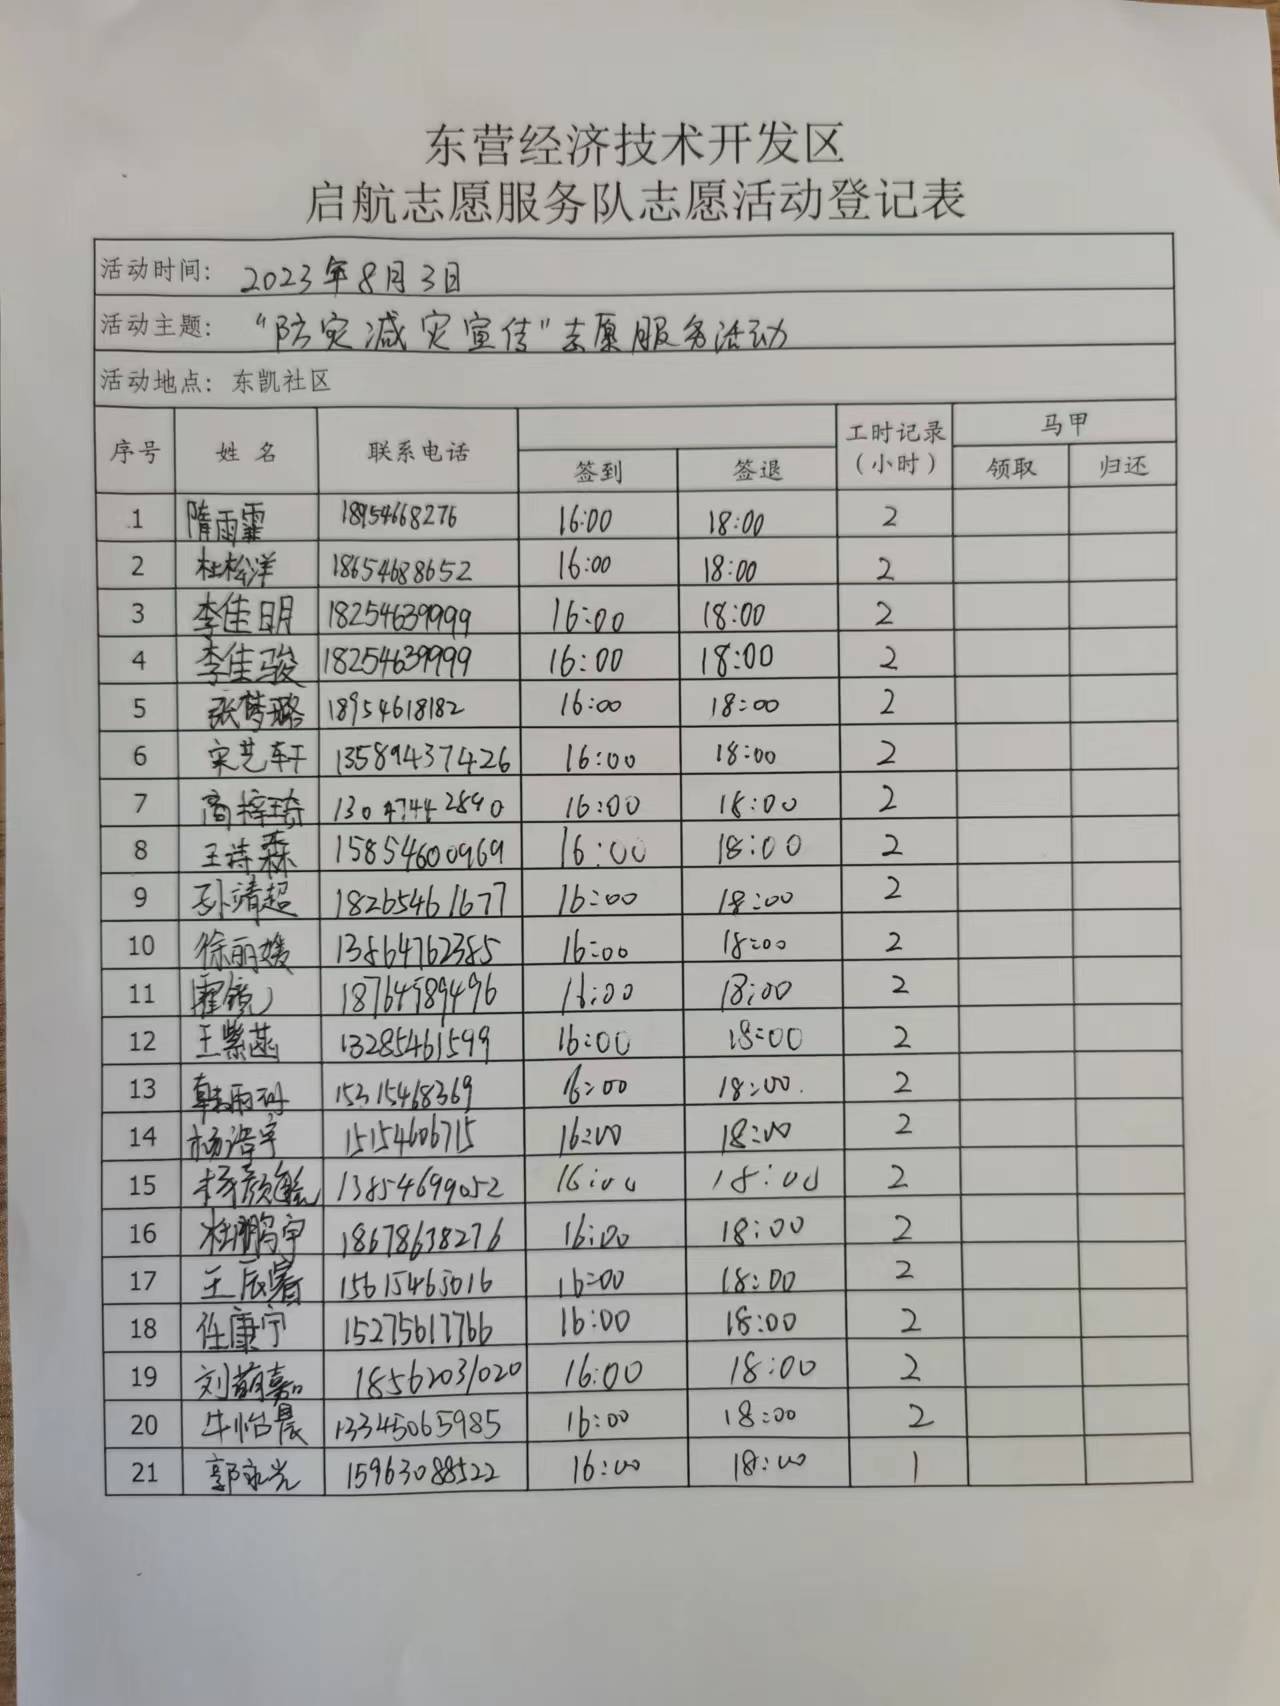 东营经济技术开发区
启航志愿服务队志愿活动登记表
活动时间：2023年8月3日
活动主题："防灾减灾宣传"志愿服务活动
活动地点：东凯社区
序号 姓名 联系电话 签到 签退 工时记录（小时） 马甲 领取 归还
1 隋雨霏 18954668276 16:00 18:00 2
2 杜松洋 18654688652 16:00 18:00 2
3 李佳明 18254639999 16:00 18:00 2
4 李佳骏 18254639999 16:00 18:00 2
5 张梦璐 18954618182 16:00 18:00 2
6 宋艺轩 13589437426 16:00 18:00 2
7 商梓琦 13047442890 16:00 18:00 2
8 王诗森 15854600969 16:00 18:00 2
9 孙靖超 18265461677 16:00 18:00 2
10 徐丽媛 13864762385 16:00 18:00 2
11 霍镜 18764589496 16:00 18:00 2
12 王紫菡 13285461599 16:00 18:00 2
13 韩雨珂 15315468369 16:00 18:00 2
14 杨浩宇 15154606715 16:00 18:00 2
15 杨颜毓 13854699052 16:00 18:00 2
16 杜鹏宇 18678638276 16:00 18:00 2
17 王辰睿 15615463016 16:00 18:00 2
18 任康宁 15275617766 16:00 18:00 2
19 刘萌嘉 18562031020 16:00 18:00 2
20 牛怡晨 13345065985 16:00 18:00 2
21 郭永光 15963088522 16:00 18:00 1